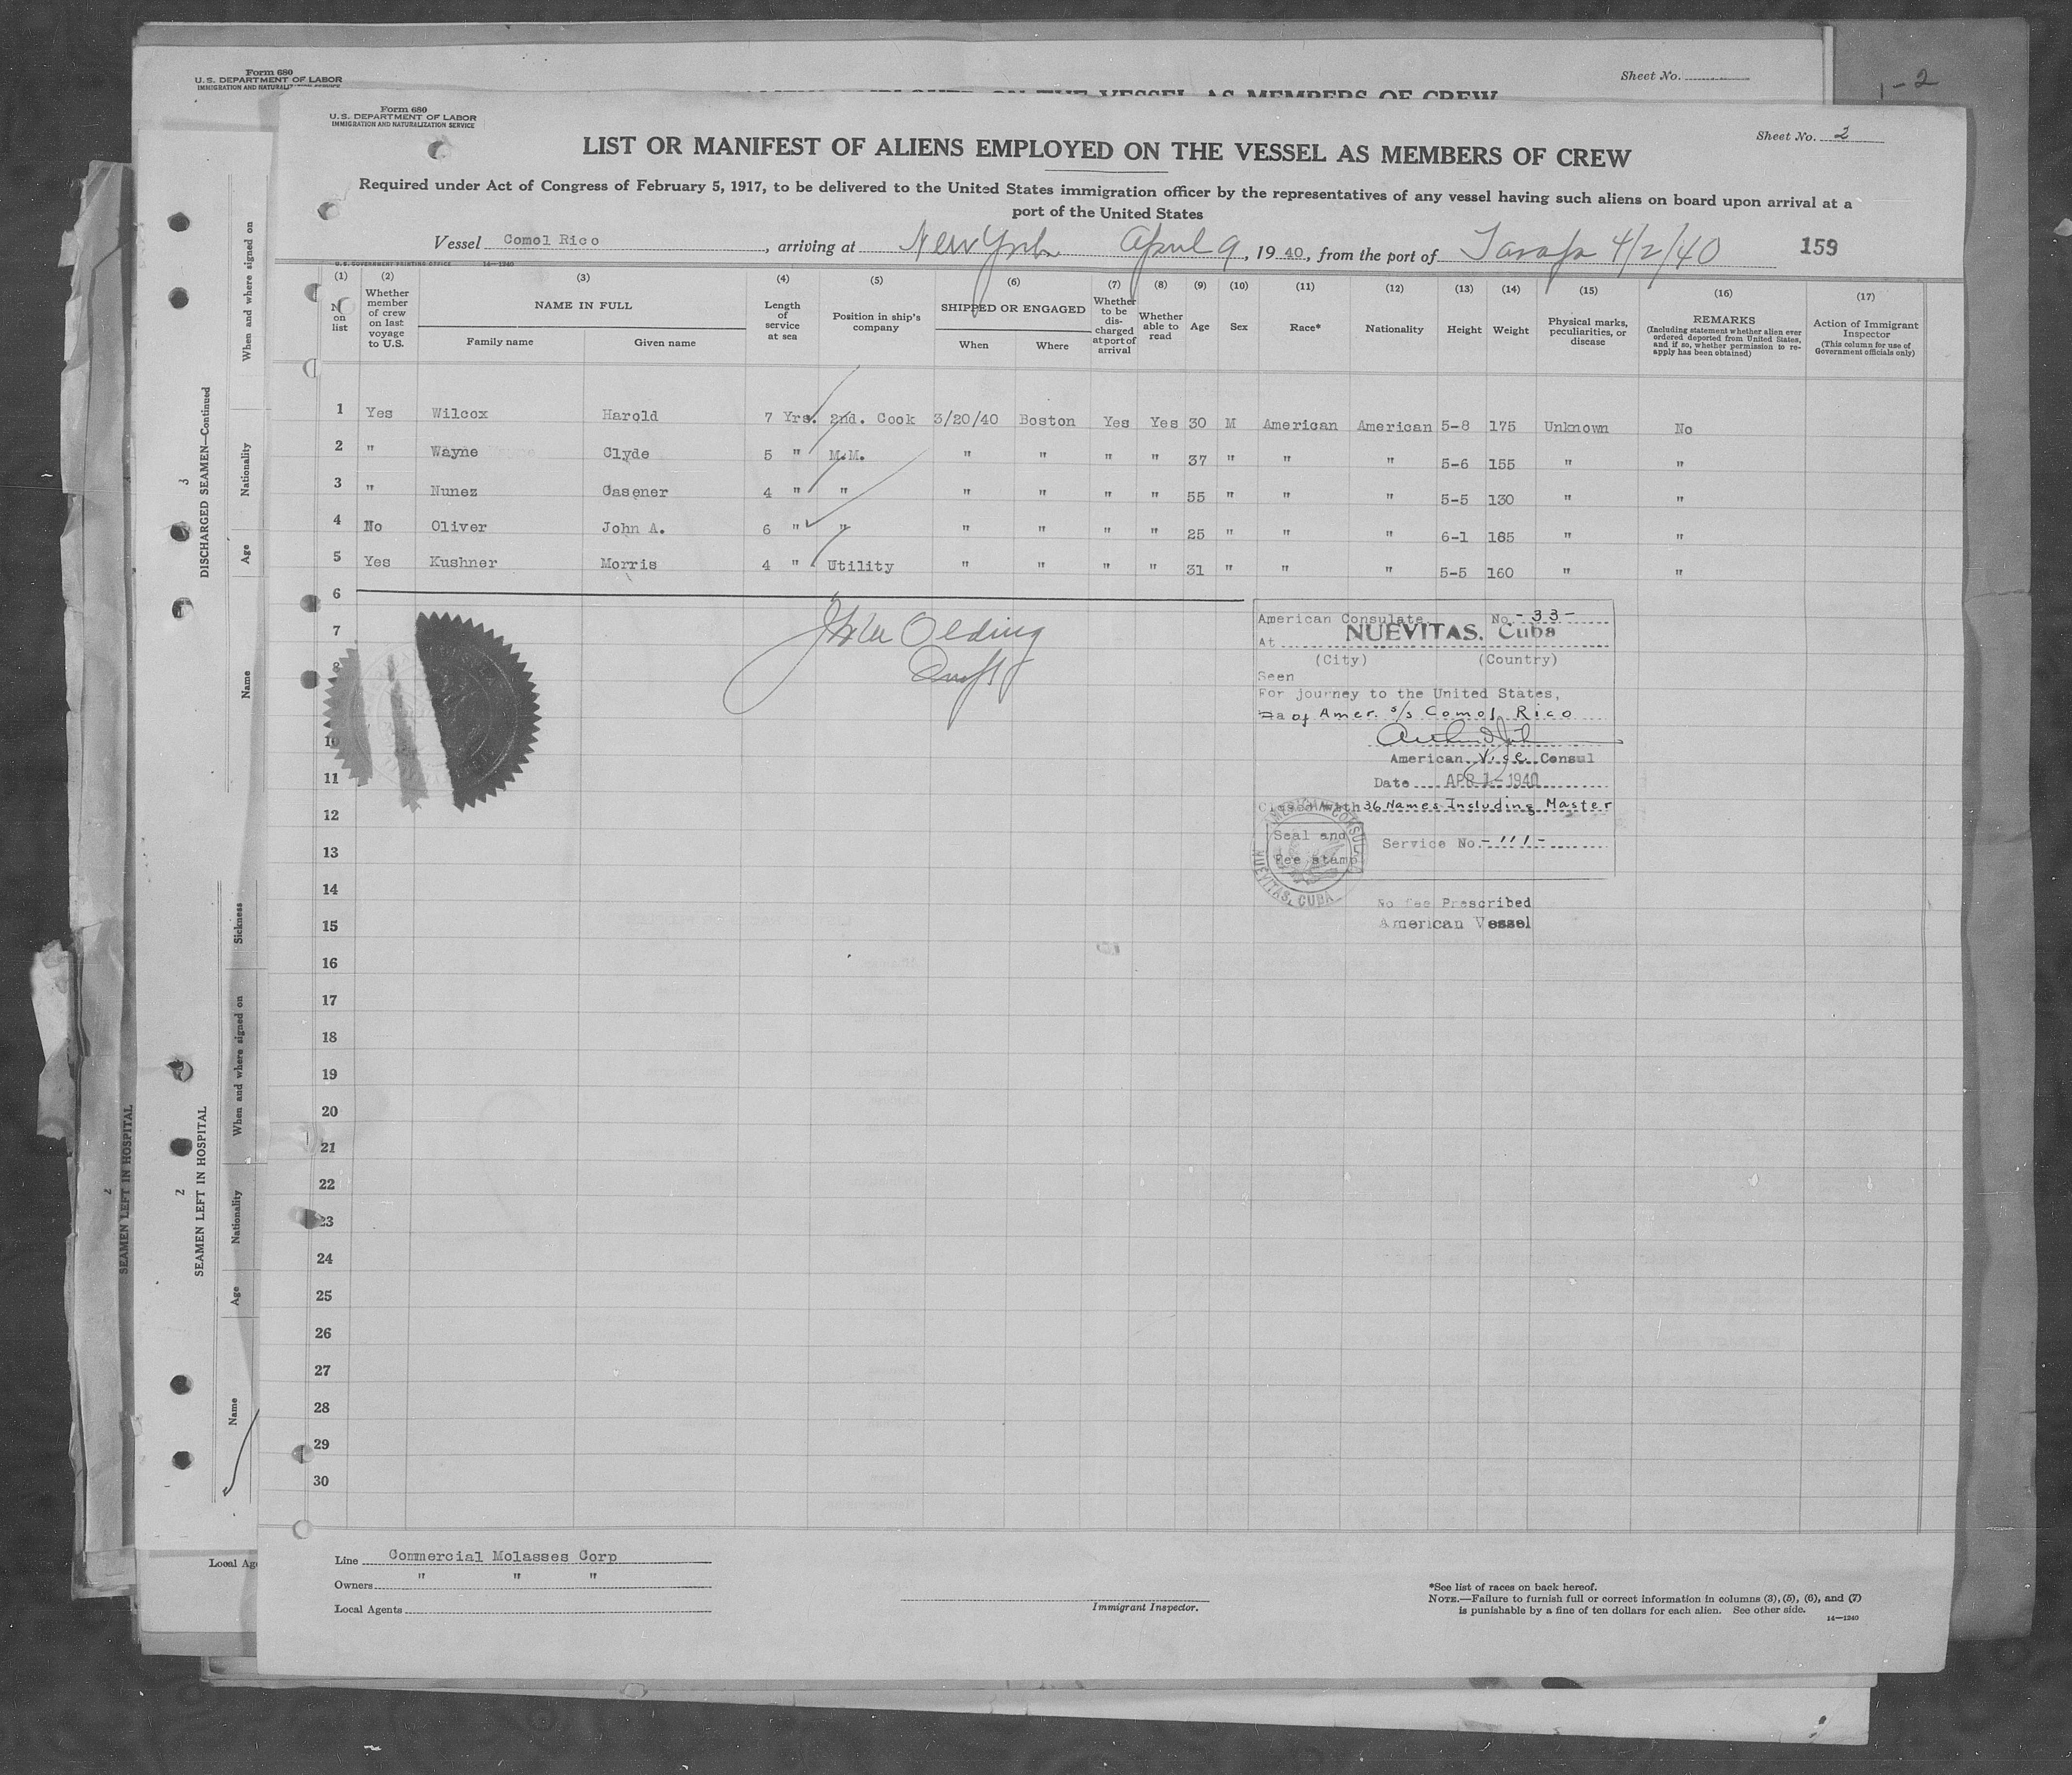 Form 680
U. S. DEPARTMENT OF LABOR
Sheet No.
1-2
Form 680
U. S. DEPARTMENT OF LABOR
IMMIGRATION AND NATURALIZATION SERVICE
Sheet No. 2
LIST OR MANIFEST OF ALIENS EMPLOYED ON THE VESSEL AS MEMBERS OF CREW
Required under Act of Congress of February 5, 1917, to be delivered to the United States immigration officer by the representatives of any vessel having such aliens on board upon arrival at a
port of the United States
Vessel Comol Rico, arriving at New York April 9, 19 40, from the port of 4/2/40 159
U. S. GOVERNMENT PRINTING OFFICE 14-1240
(1) (2) (3) (4) (5) (6) (7) (8) (9) (10) (11) (12) (13) (14) (15) (16) (17)
No. on list
Whether member of crew on last voyage to U.S.
NAME IN FULL
Family name
Given name
Length of service at sea
Position in ship's company
SHIPPED OR ENGAGED
When
Where
Whether to be discharged at port of arrival
Whether able to read
Age
Sex
Race*
Nationality
Height
Weight
Physical marks, peculiarities, or disease
REMARKS
(Including statement whether alien ever ordered deported from United States, and if so, whether permission to re-apply has been obtained)
Action of Immigrant Inspector
(This column for use of Government officials only)
1 Yes Wilcox Harold 7 Yrs. 2nd. Cook 3/20/40 Boston Yes Yes 30 M American American 5-8 175 Unknown No
2 " Wayne Clyde 5 " M.M. " " " " 37 " " " 5-6 155 " "
3 " Nunez Casener 4 " " " " " " 55 " " " 5-5 130 " "
4 No Oliver John A. 6 " " " " " " 25 " " " 6-1 185 " "
5 Yes Kushner Morris 4 " Utility " " " " 31 " " " 5-5 160 " "
6
7
8
10
11
12
13
14
15
16
17
18
19
20
21
22
23
24
25
26
27
28
29
30
Olding
American Consulate No. -33-
At NUEVITAS, Cuba
(City) (Country)
Seen
For journey to the United States,
of Amer. s/s Comol Rico
American Vice Consul
Date APR 1-1940
Closed with 36 Names Including Master
Seal and
Fee stamp
AMERICAN CONSULATE
NUEVITAS, CUBA
Service No. -111-
No fee Prescribed
American Vessel
Line Commercial Molasses Corp
Owners " " "
Local Agents
Immigrant Inspector.
*See list of races on back hereof.
NOTE.—Failure to furnish full or correct information in columns (3), (5), (6), and (7)
is punishable by a fine of ten dollars for each alien. See other side.
14-1240
When and where signed on
Nationality
Age
Name
3
DISCHARGED SEAMEN—Continued
Sickness
When and where signed on
Nationality
Age
Name
2
SEAMEN LEFT IN HOSPITAL
2
SEAMEN LEFT IN HOSPITAL